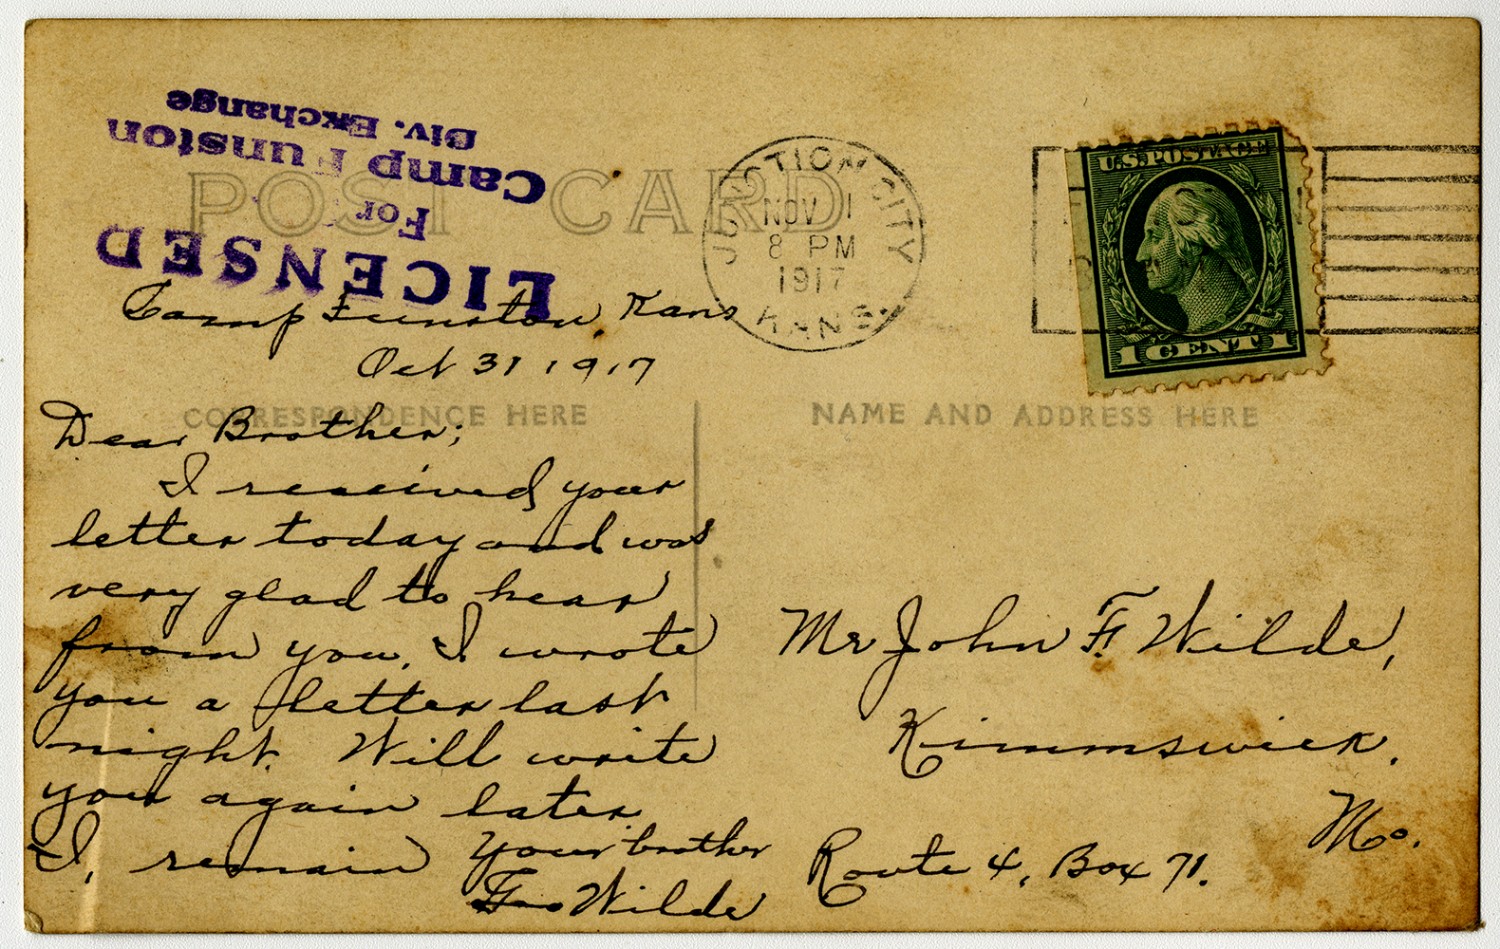 LICENSED
For
Camp Funston
Div. Exchange
POST CARD
JUNCTION CITY
NOV 1
8 PM
1917
KANS.
U.S. POSTAGE
1 CENT 1
Camp Funston, Kans
Oct 31, 1917
CORRESPONDENCE HERE
NAME AND ADDRESS HERE
Dear Brother;
I received your
letter today and was
very glad to hear
from you. I wrote
you a letter last
night. Will write
you again later.
I, remain your brother
Geo Wilde
Mr John F. Wilde,
Kimmswick.
Mo.
Route 4, Box 71.